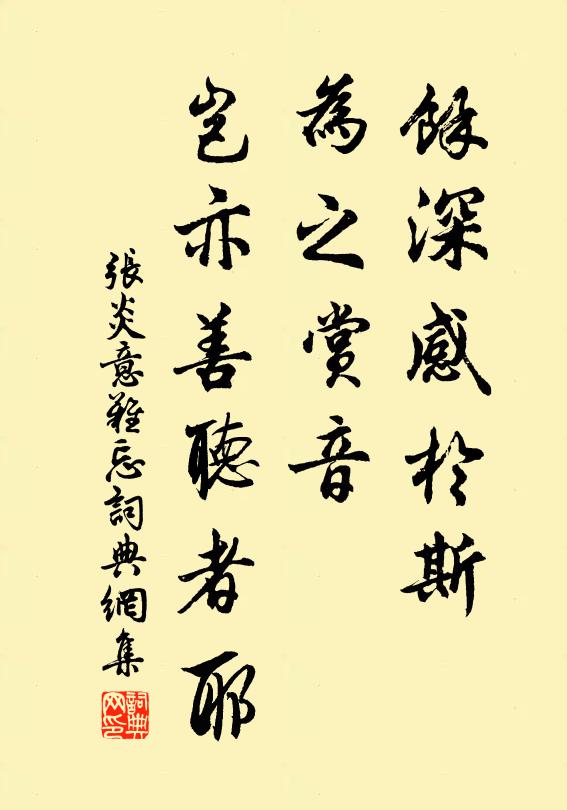 餘深感於斯
為之賞音
豈亦善聽者耶
張炎意難忘詞典網集
詞典網印